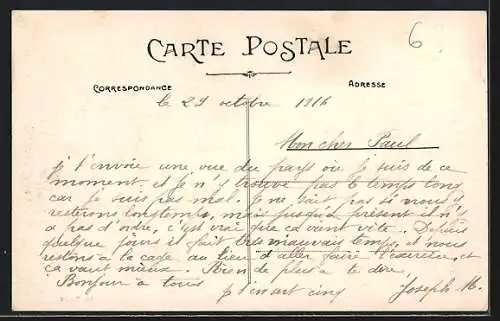 6
CARTE POSTALE
CORRESPONDANCE
ADRESSE
le 29 octobre 1916
Mon cher Paul
j t'envoie une vue du pays où je suis de ce
moment et je n'y trouve pas le temps long
car je suis pas mal. Je ne sait pas si nous y
resterons longtemps, mais jusqu'à présent il n'y
a pas d'ordre, c'est vrai que ca vient vite. Depuis
quelque jours il fait très mauvais temps, et nous
restons à la cage au lieu d'aller faire l'exercice, et
ça vaut mieux. Rien de plus a te dire,
Bonjour a tous
Joseph M.